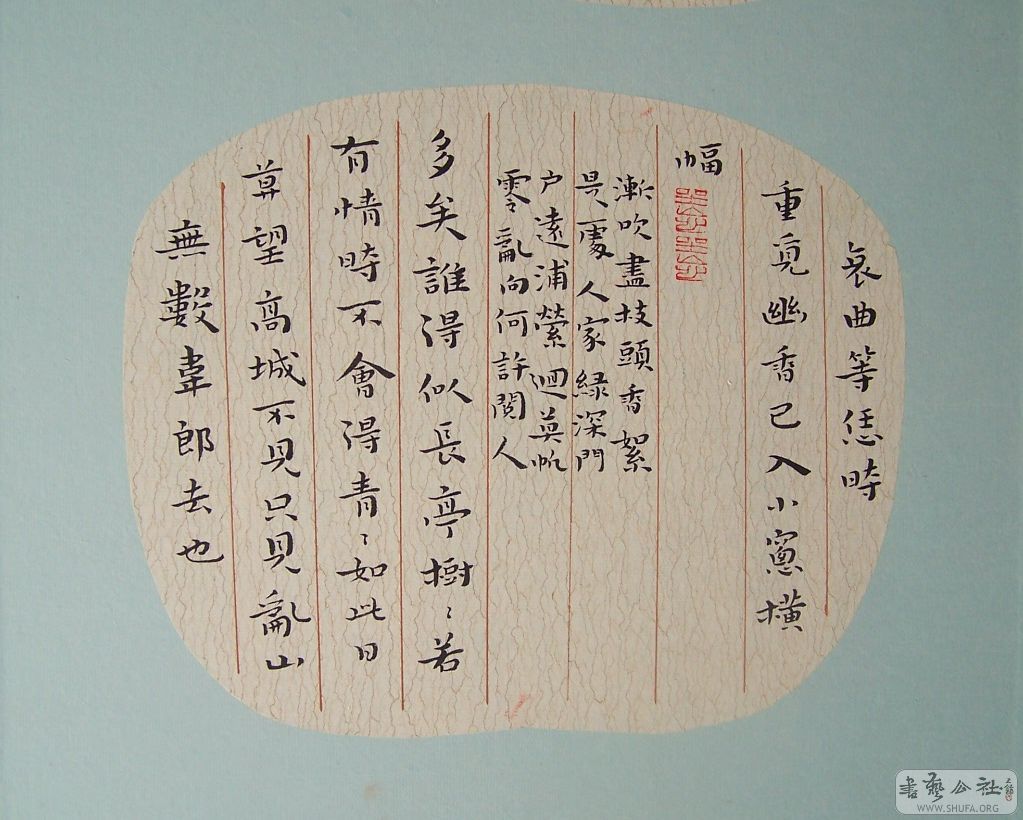 哀曲等恁時
重覓幽香已入小窻橫
幅
漸吹盡枝頭香絮
是處人家綠深門
户遠浦縈迴莫帆
零亂向何許閱人
多矣誰得似長亭樹〻若
有情時不會得青〻如此日
莫望高城不見只見亂山
無數韋郎去也
書藝公社
WWW.SHUFA.ORG